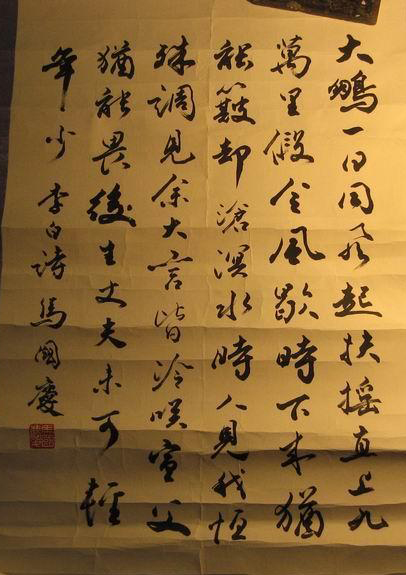 大鵬一日同風起扶搖直上九
萬里假令風歇時下来猶
能簸却滄溟水時人見我恒
殊調見余大言皆冷咲宣父
猶能畏後生丈夫未可輕
年少 李白詩 馬國慶